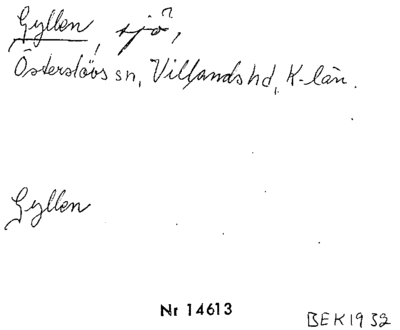 Gyllen, sjö?,
Österslövs sn, Villands hd, K-län.
Gyllen
Nr 14613
BEK1932